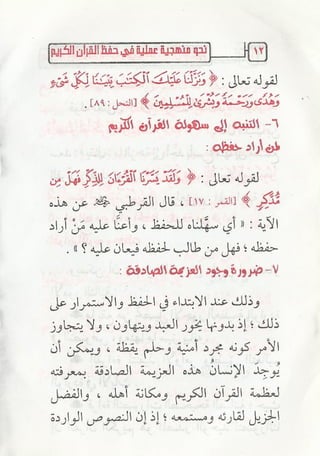 ١٢
نحو منهجية عملية في حفظ القرآن الكريم
لقوله تعالى : ﴿ وَنَزَّلْنَا عَلَيْكَ الْكِتَابَ تِبْيَانًا لِّكُلِّ شَيْءٍ
وَهُدًى وَرَحْمَةً وَبُشْرَىٰ لِلْمُسْلِمِينَ ﴾ [النحل : ٨٩] .
٦- التنبه إلى سهولة القرآن الكريم
لمن أراد حفظه :
لقوله تعالى : ﴿ وَلَقَدْ يَسَّرْنَا الْقُرْآنَ لِلذِّكْرِ فَهَلْ مِن
مُّدَّكِرٍ ﴾ [القمر : ١٧] ، قال القرطبي عن هذه
الآية : « أي سهَّلناه للحفظ ، وأعنَّا عليه مَنْ أراد
حفظه ؛ فهل من طالب لحفظه فيعان عليه ؟ » .
٧- ضرورة وجود العزيمة الصادقة :
وذلك عند الابتداء في الحفظ والاستمرار على
ذلك ؛ إذ بدونها يخور العبد ويتهاون ، ولا يتجاوز
الأمر كونه مجرد أمنية وحلم يقظة ، ويمكن أن
يُوجِدَ الإنسانُ هذه العزيمة الصادقة بمعرفته
لعظمة القرآن الكريم ومكانة أهله ، والفضل
الجزيل لقارئه ومستمعه ؛ إذ إن النصوص الواردة